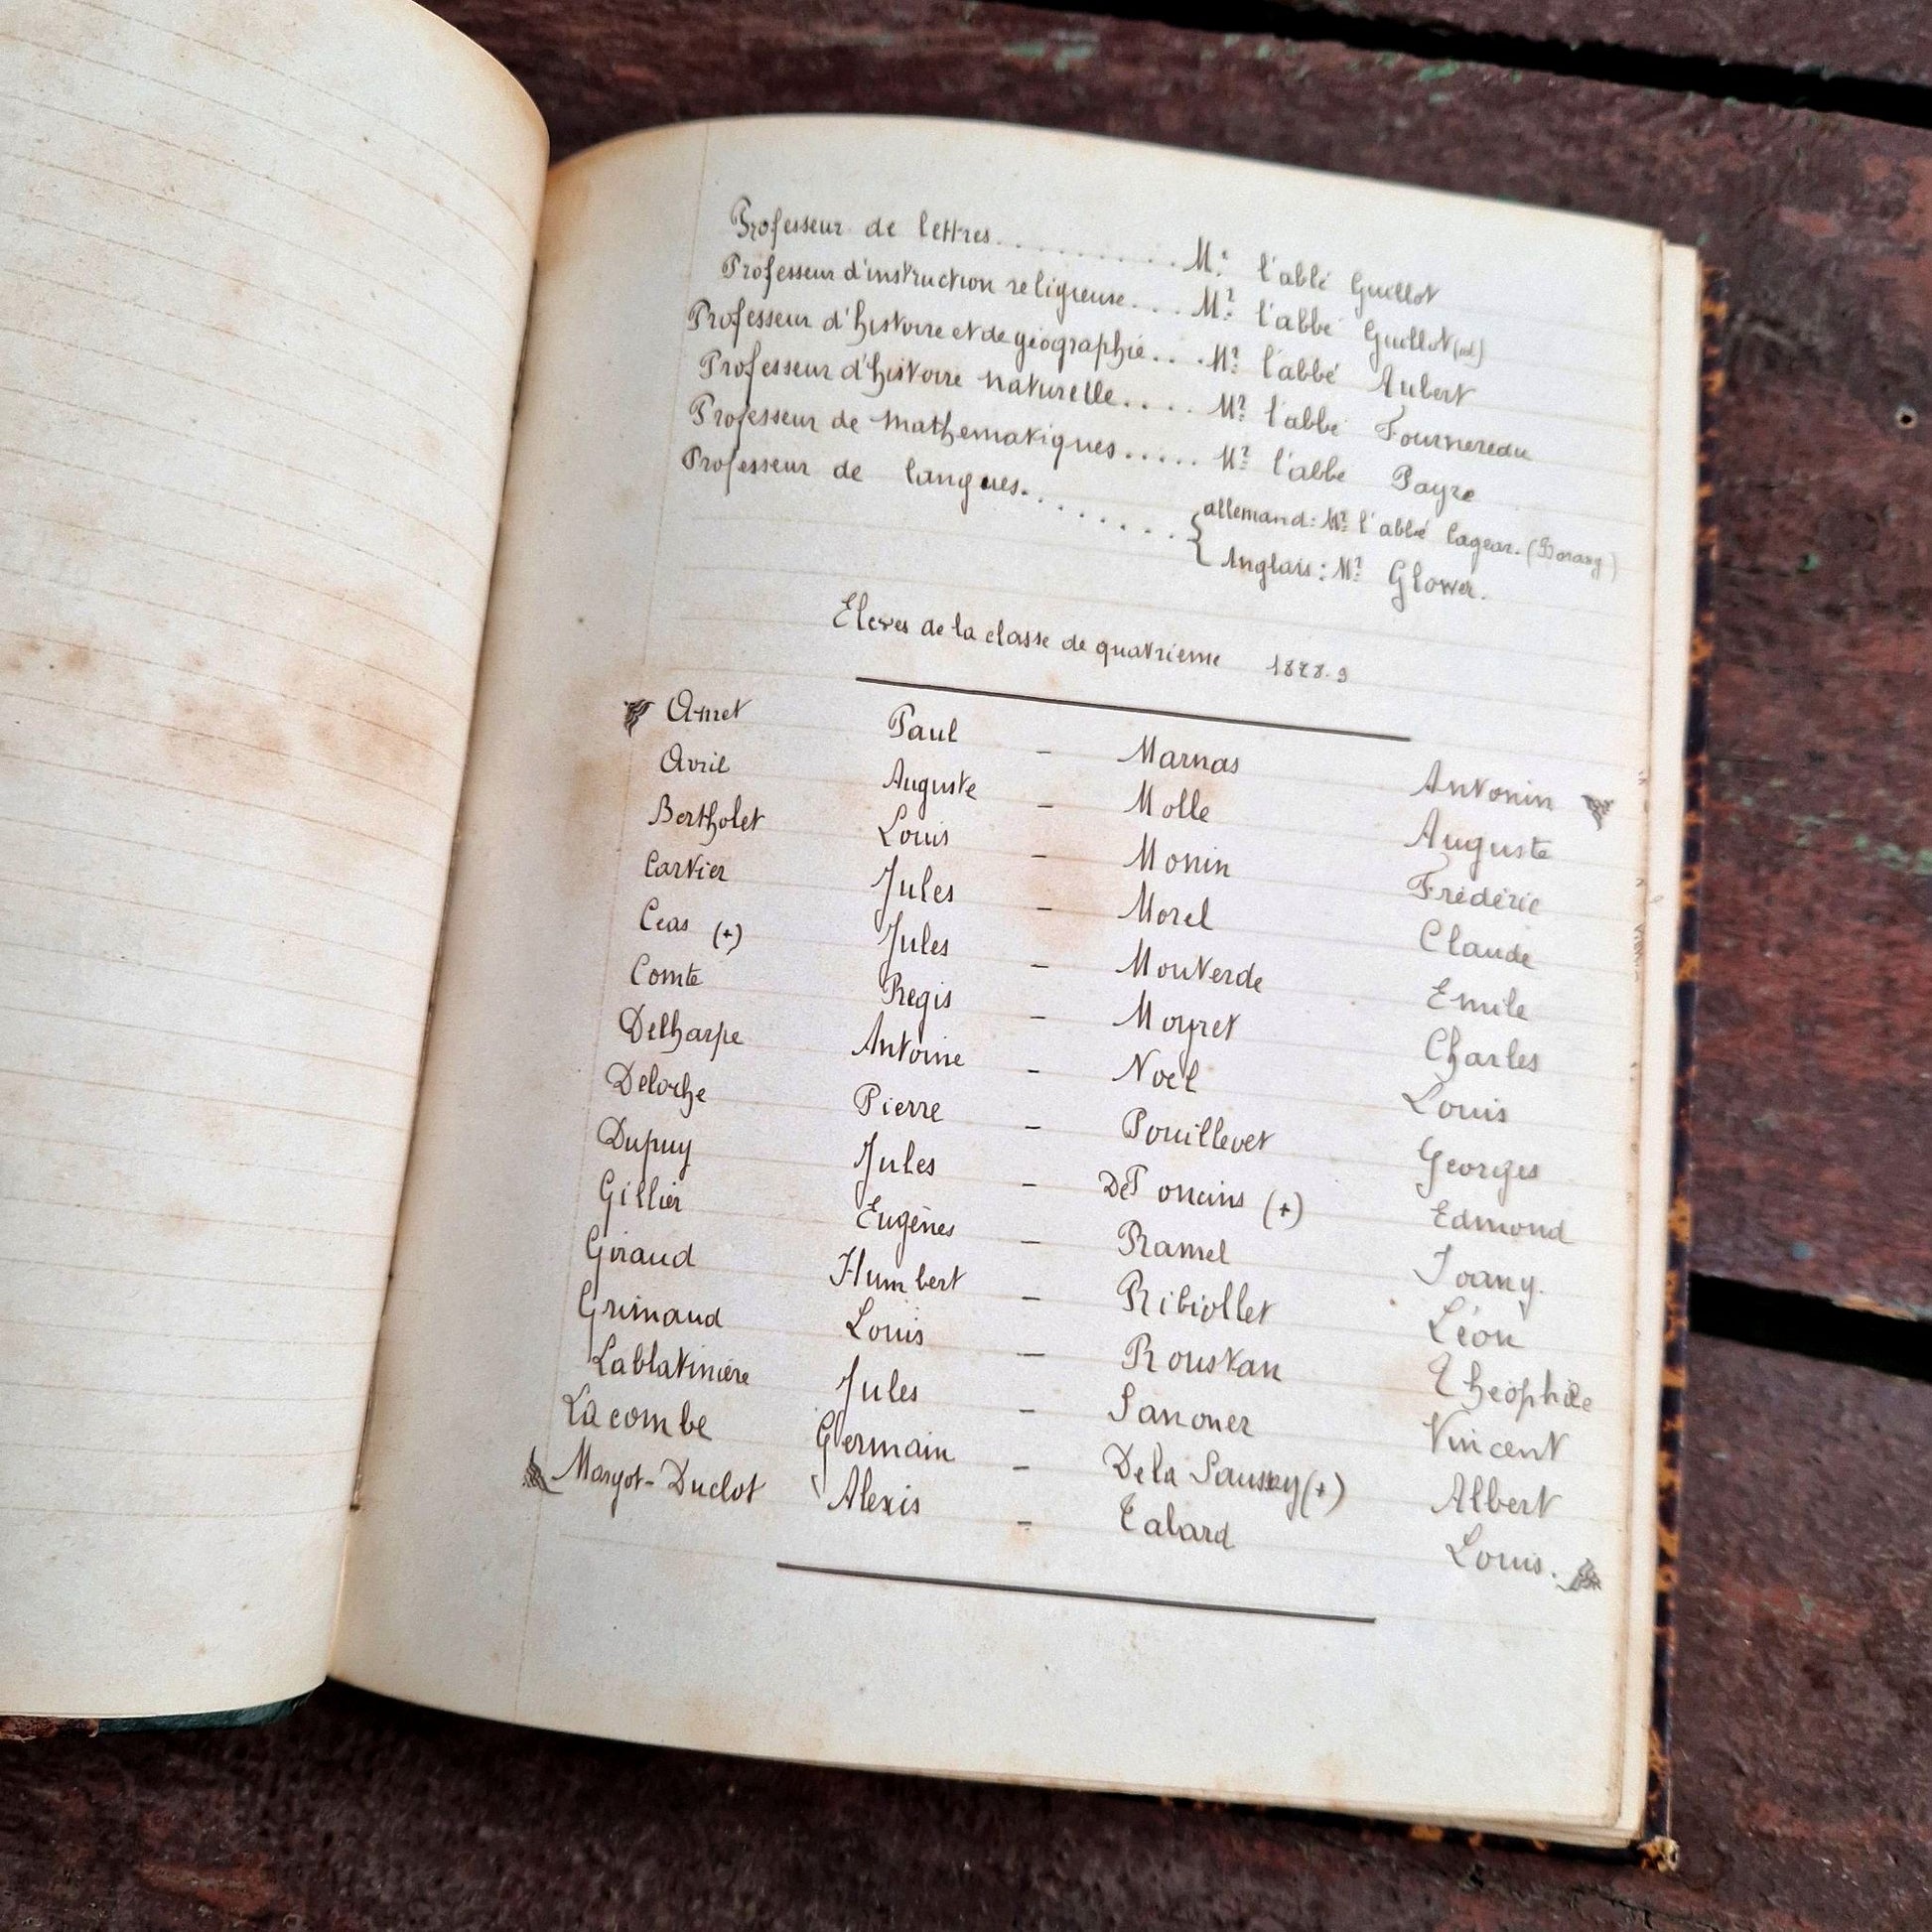 Professeur de lettres............Mr l'abbé Guillot
Professeur d'instruction religieuse....Mr l'abbé Guillot
Professeur d'histoire et de géographie....Mr l'abbé Aubert
Professeur d'histoire naturelle.....Mr l'abbé Fournereau
Professeur de mathematiques.....Mr l'abbe Payre
Professeur de langues......... { allemand: Mr l'abbé
Anglais: Mr Glower.
Eleves de la classe de quatrieme 1878.9
Amet Paul - Marnas Antonin
Avril Auguste - Molle Auguste
Bertholet Louis - Monin Frédéric
Cartier Jules - Morel Claude
Ceas (+) Jules - Mouterde Emile
Comte Regis - Moyret Charles
Delharpe Antoine - Noël Louis
Deloche Pierre - Pouillevet Georges
Dupuy Jules - De Poncins (+) Edmond
Gillier Eugènes - Ramel Joany.
Giraud Humbert - Ribiollet Léon
Grimaud Louis - Roustan Théophile
Lablatinière Jules - Sanoner Vincent
Lacombe Germain - De la Saussay (+) Albert
Margot-Duclot Alexis - Talard Louis.